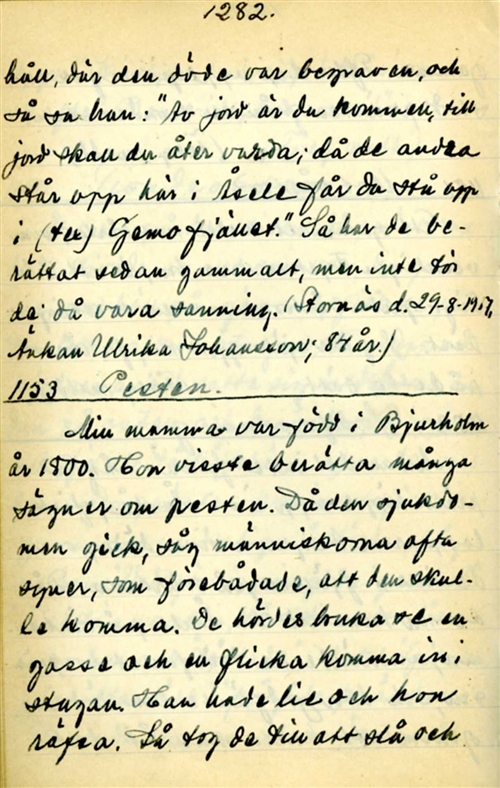 1282.
håll, där den döde var begraven, och
så sa han: "Av jord är du kommen, till
jord skall du åter varda; då de andra
står opp här i Åsele får du stå opp
i (tex) Gemofjället." Så har de be-
rättat sedan gammalt, men inte tör
de' då vara sanning. (Stornäs d. 29-8-1917,
Änkan Ulrika Johansson; 84 år.)
1153 Pesten.
Min mamma var född i Bjurholm
år 1800. Hon visste berätta många
sägner om pesten. Då den sjukdo-
men gick, såg människorna ofta
syner, som förebådade, att den skul-
le komma. De hördes bruka se en
gosse och en flicka komma in i
stugan. Han hade lie och hon
räfsa. Så tog de till att slå och